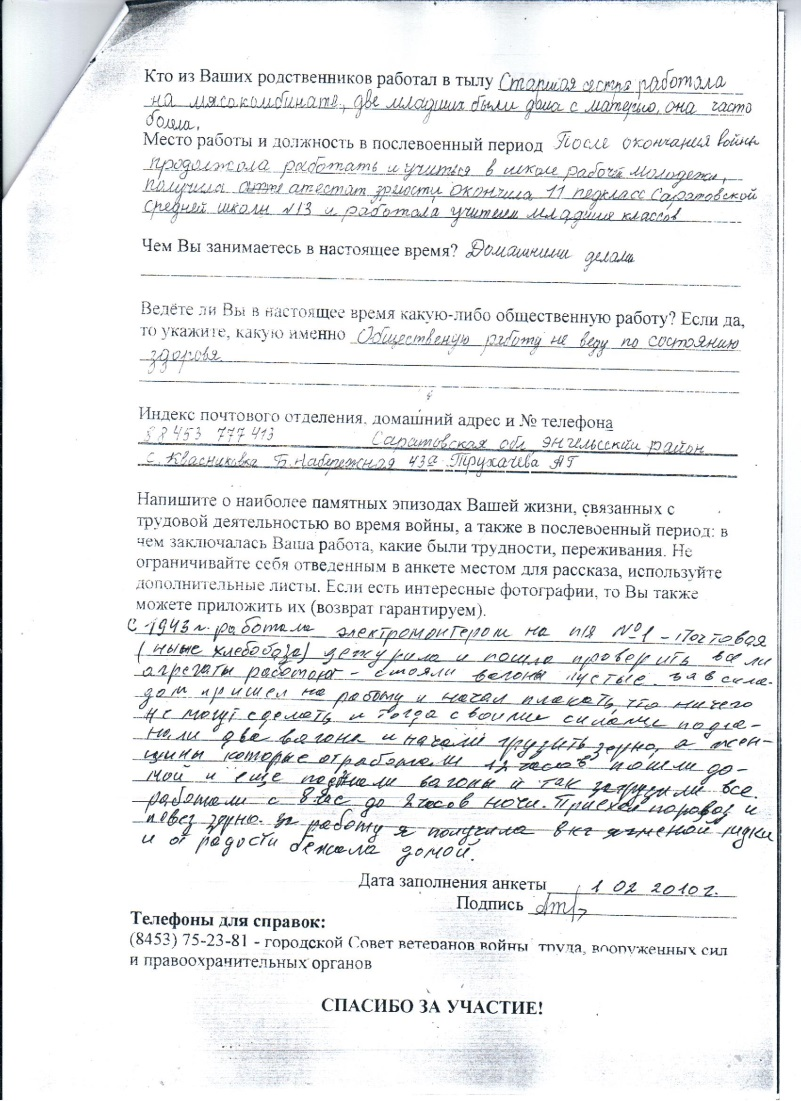 Кто из Ваших родственников работал в тылу Старшая сестра работала
на мясокомбинате, две младших были дома с матерью, она часто
болела.
Место работы и должность в послевоенный период После окончания войны
продолжала работать и учиться в школе рабочей молодежи,
получила атестат зрелости, окончила 11 педкласс Саратовской
средней школы №13 и работала учителем младших классов
Чем Вы занимаетесь в настоящее время? Домашними делами
Ведёте ли Вы в настоящее время какую-либо общественную работу? Если да,
то укажите, какую именно Общественую работу не веду по состоянию
здоровя
Индекс почтового отделения, домашний адрес и № телефона
88453 777413 Саратовская обл Энгельсский район
с. Квасниковка Б. Набережная 43а Трухачева АГ
Напишите о наиболее памятных эпизодах Вашей жизни, связанных с
трудовой деятельностью во время войны, а также в послевоенный период: в
чем заключалась Ваша работа, какие были трудности, переживания. Не
ограничивайте себя отведенным в анкете местом для рассказа, используйте
дополнительные листы. Если есть интересные фотографии, то Вы также
можете приложить их (возврат гарантируем).
С 1943 г. работала электромонтером на п/я №1 - Почтовая
(ныне хлебобаза) дежурила и пошла проверить все ли
агрегаты работают - стояли вагоны пустые зав скла-
дом пришел на работу и начал плакать, что ничего
не могут сделать и тогда своими силами подог-
нали два вагона и начали грузить зерно, а жен-
щины которые отработали 12 часов пошли до-
мой и еще подгнали вагоны и так загрузили все.
работали с 8 час до 2 часов ночи. Приехал паровоз и
повез зерно. За работу я получила 8 кг
и от радости бежала домой.
Дата заполнения анкеты 1 02 2010 г.
Подпись
Телефоны для справок:
(8453) 75-23-81 - городской Совет ветеранов войны, труда, вооруженных сил
и правоохранительных органов
СПАСИБО ЗА УЧАСТИЕ!